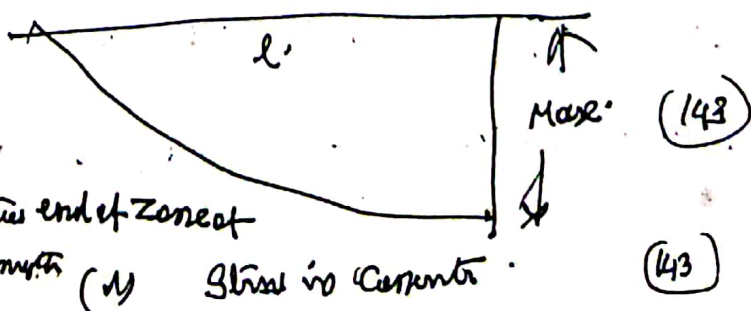 l.
Max. (143)
end of Zone of
(M) Stress in Concrete. (143)